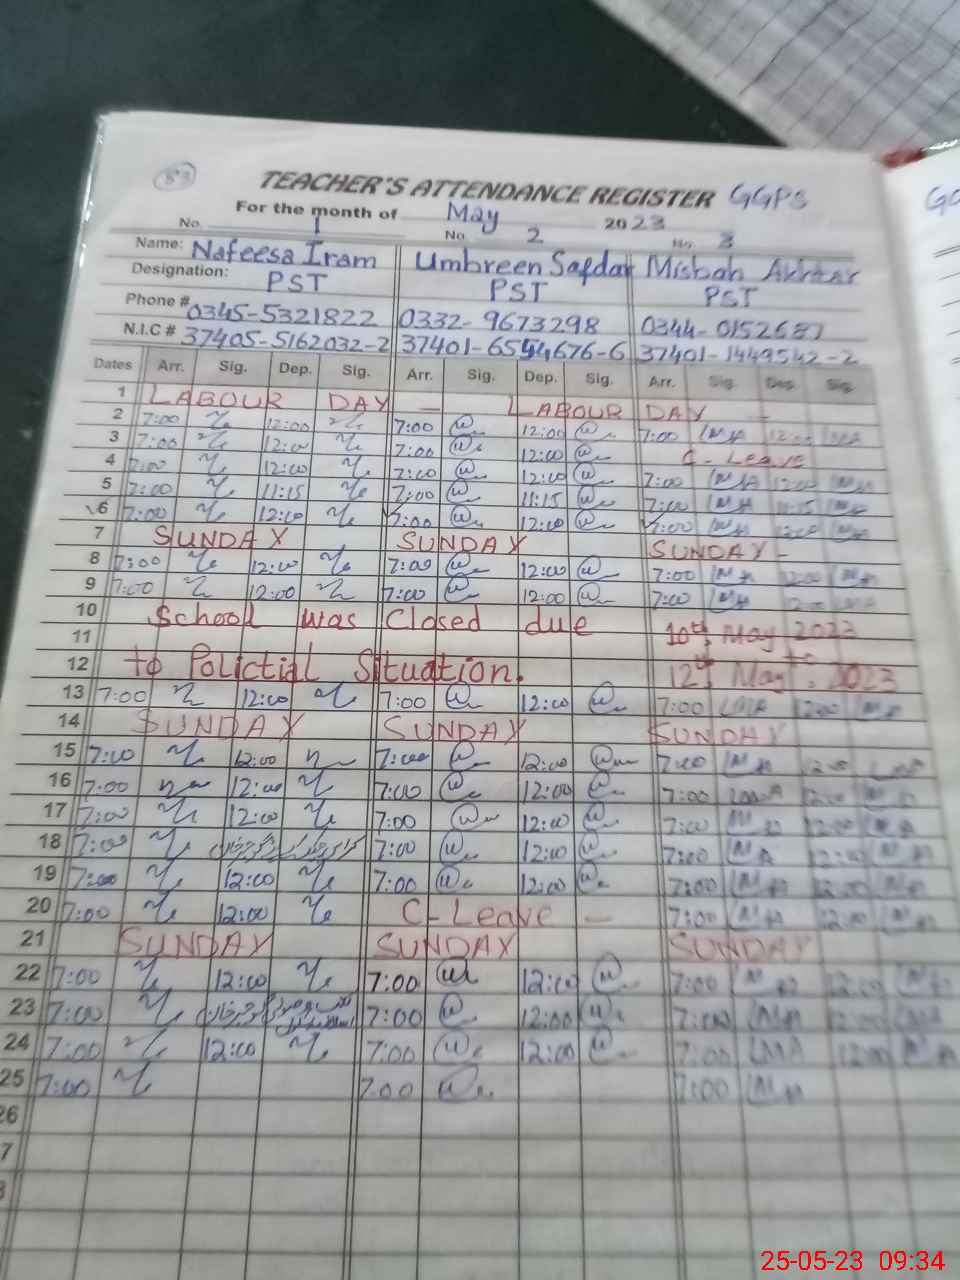 83
TEACHER'S ATTENDANCE REGISTER GGPS
For the month of May 2023
No. 1 No. 2 No. 3
Name: Nafeesa Iram Umbreen Safdar Misbah Akhtar
Designation: PST PST PST
Phone # 0345-5321822 0332-9673298 0344-0152687
N.I.C # 37405-5162032-2 37401-6544676-6 37401-1449542-2
Dates Arr. Sig. Dep. Sig. Arr. Sig. Dep. Sig. Arr. Sig. Dep. Sig.
1 LABOUR DAY — LABOUR DAY —
2 7:00 12:00 7:00 12:00 7:00 12:00
3 7:00 12:00 7:00 12:00 C-Leave
4 7:00 12:00 7:00 12:00 7:00 12:00
5 7:00 11:15 7:00 11:15 7:00 11:15
6 7:00 12:00 7:00 12:00 7:00 12:00
7 SUNDAY SUNDAY SUNDAY -
8 7:00 12:00 7:00 12:00 7:00 12:00
9 7:00 12:00 7:00 12:00 7:00 12:00
10 School was Closed due 10th May 2023
11 to
12 to Polictial Situation. 12th May. 2023
13 7:00 12:00 7:00 12:00 7:00 12:00
14 SUNDAY SUNDAY SUNDAY
15 7:00 12:00 7:00 12:00 7:00 12:00
16 7:00 12:00 7:00 12:00 7:00 12:00
17 7:00 12:00 7:00 12:00 7:00 12:00
18 7:00 7:00 12:00 7:00 12:00
19 7:00 12:00 7:00 12:00 7:00 12:00
20 7:00 12:00 C-Leave — 7:00 12:00
21 SUNDAY SUNDAY SUNDAY
22 7:00 12:00 7:00 12:00 7:00 12:00
23 7:00 7:00 12:00 7:00 12:00
24 7:00 12:00 7:00 12:00 7:00 12:00
25 7:00 7:00 7:00
26
7
25-05-23 09:34